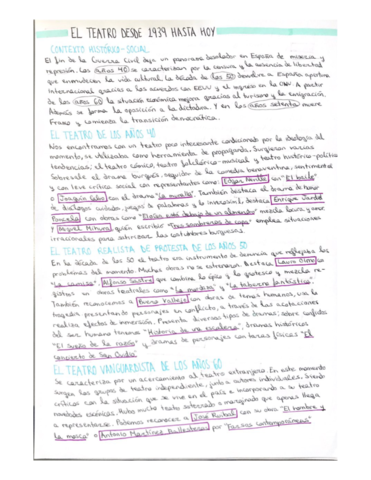 EL TEATRO DESDE 1939 HASTA HOY
CONTEXTO HISTÓRICO - SOCIAL
El fin de la Guerra Civil deja un panorama desolador en España de miseria y
represión. Los años 40 se caracterizan por la censura y la ausencia de libertad
que enmudecen la vida cultural. La década de los 50 devuelve a España apertura
Internacional gracias a los acuerdos con EEUU y el ingreso en la ONU. A partir
de los años 60 la situación económica mejora gracias al turismo y la emigración.
Además se forma la oposición a la dictadura. Y en los años setenta muere
Franco y comienza la transición democrática.
EL TEATRO DE LOS AÑOS 40
Nos encontramos con un teatro poco interesante condicionado por la ideología del
momento, se utilizaba como herramienta de propaganda. Surgieron varias
tendencias: el teatro cómico, teatro folclórico-musical y teatro histórico-político
Sobresalió el drama burgués, seguidor de la comedia benaventina, sentimental
y con leve crítica social con representantes como Edgar Neville con "El baile"
o Joaquín Calvo con el drama "La muralla". También destaca el drama de humor
de diálogos cuidado, juegos de palabras y lo inverosímil, destaca Enrique Jardiel
Poncela con obras como "Eloísa está debajo de un almendro" mezcla locura y amor
y Miguel Mihura quién escribió "Tres sombreros de copa" emplea situaciones
irracionales para satirizar las costumbres burguesas.
EL TEATRO REALISTA DE PROTESTA DE LOS AÑOS 50
En la década de los 50 el teatro era instrumento de denuncia que reflejaba los
problemas del momento. Muchas obras no se estrenaron. Destaca Lauro Olmo
"La camisa". Alfonso Sastre que combina lo épico y lo grotesco y mezcla
en obras teatrales como "La mordaza" y "La taberna fantástica".
También reconocemos a Buero Vallejo con obras de temas humanos, usa la
tragedia presentando personajes en conflicto, a través de las acotaciones
realiza efectos de inmersión. Presenta diversos tipos de dramas: sobre conflictos
del ser humano tenemos "Historia de una escalera", dramas históricos
"El sueño de la razón" y dramas de personajes con taras físicas "El
concierto de San Ovidio"
EL TEATRO VANGUARDISTA DE LOS AÑOS 60
Se caracteriza por un acercamiento al teatro extranjero. En este momento
surgen los grupos de teatro independiente, junto a autores individuales. Siendo
críticos con la situación que se vive en el país e incorporando a su teatro
novedades escénicas. Hubo mucho teatro soterrado o marginado que apenas llega
a representarse. Podemos reconocer a José Ruibal con su obra "El hombre y
la mosca" o Antonio Martínez Ballesteros por "Farsas contemporáneas"